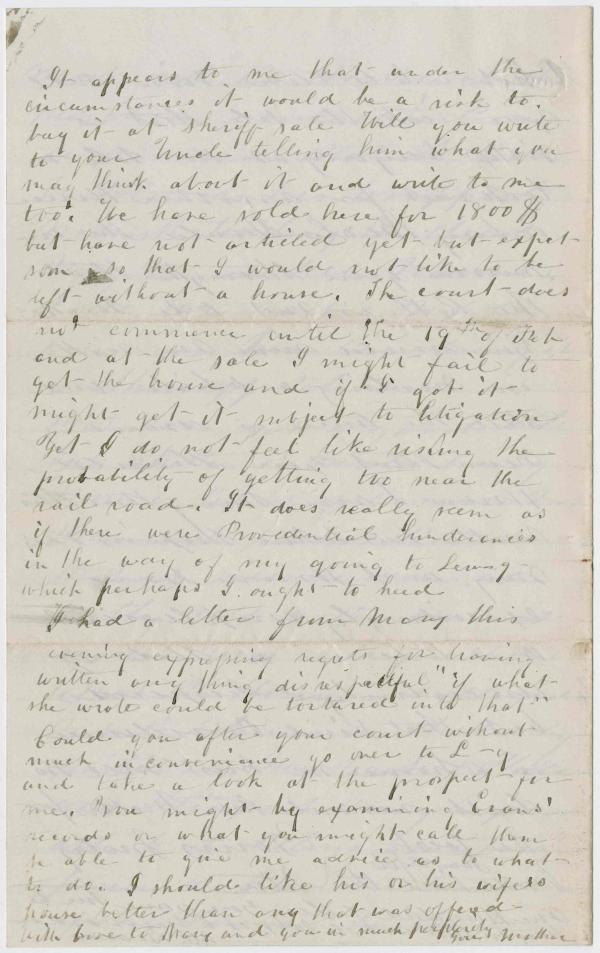 It appears to me that under the
circumstances it would be a risk to.
buy it at sheriff sale Will you write
to your Uncle telling him what you
may think about it and write to me
too. We have sold here for 1800 $
but have not articled yet but expect
soon so that I would not like to be
left without a house. The court does
not commence until the 19th of Feb
and at the sale I might fail to
get the house and if I got it
might get it subject to litigation
Yet I do not feel like risking the
probability of getting too near the
rail road. It does really seem as
if there were Providential hinderences
in the way of my going to Lew-g-
which perhaps I ought to heed
I had a letter from Mary this
evening expressing regrets for having
written any thing disrespectful "if what
she wrote could be tortured into that"
Could you after your court without
much inconvenience go over to L-g
and take a look at the prospect for
me. You might by examining Evans'
records or what you might call them
be able to give me advice as to what
to do. I should like his or his wifes
house better than any that was offered
with love to Mary and you in much perplexity
Your Mother